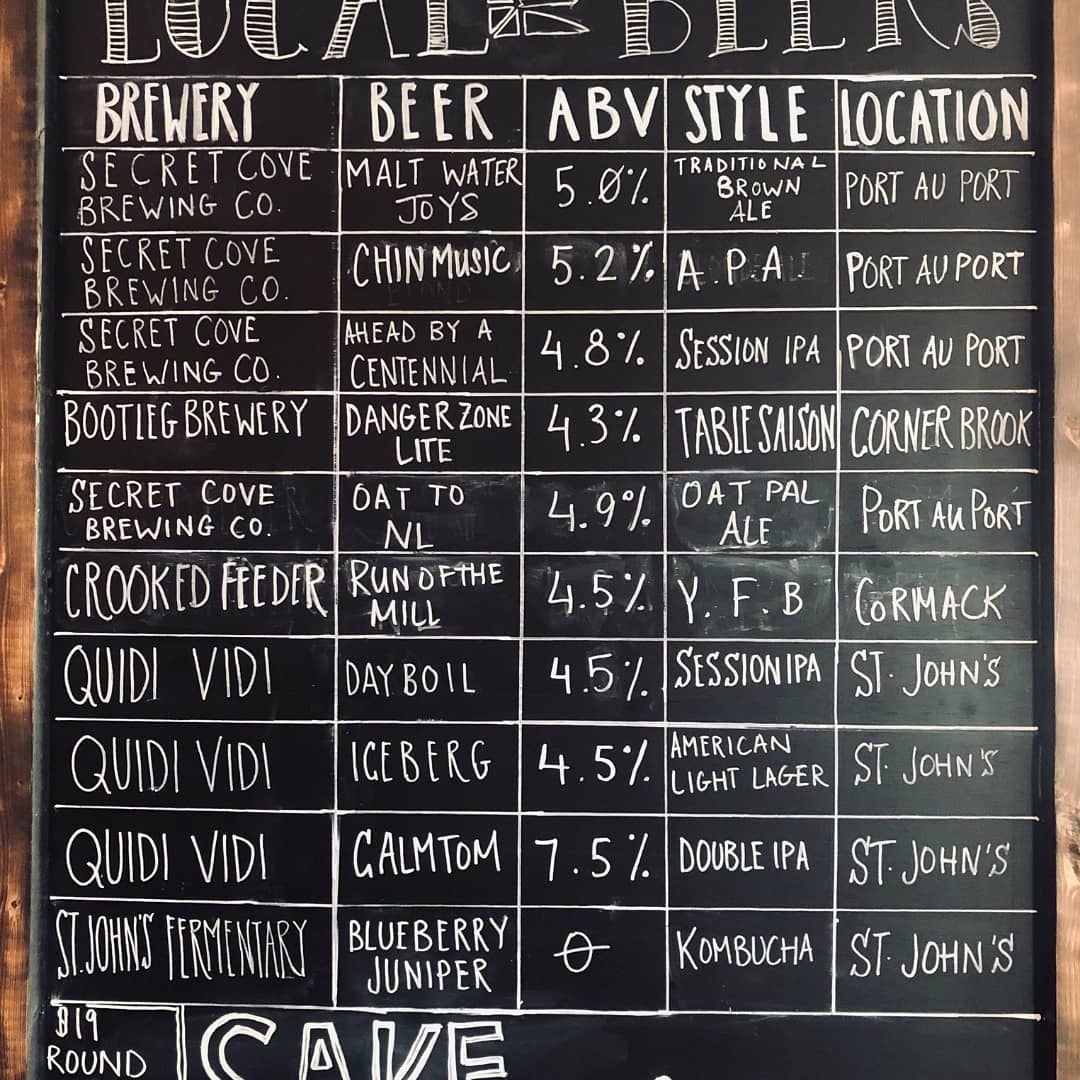 LOCAL BEERS
BREWERY BEER ABV STYLE LOCATION
SECRET COVE BREWING CO. MALT WATER JOYS 5.0% TRADITIONAL BROWN ALE PORT AU PORT
SECRET COVE BREWING CO. CHIN MUSIC 5.2% A.P.A. PORT AU PORT
SECRET COVE BREWING CO. AHEAD BY A CENTENNIAL 4.8% SESSION IPA PORT AU PORT
BOOTLEG BREWERY DANGER ZONE LITE 4.3% TABLE SAISON CORNER BROOK
SECRET COVE BREWING CO. OAT TO NL 4.9% OAT PAL ALE PORT AU PORT
CROOKED FEEDER RUN OF THE MILL 4.5% Y.F.B CORMACK
QUIDI VIDI DAY BOIL 4.5% SESSION IPA ST. JOHN'S
QUIDI VIDI ICEBERG 4.5% AMERICAN LIGHT LAGER ST. JOHN'S
QUIDI VIDI CALM TOM 7.5% DOUBLE IPA ST. JOHN'S
ST. JOHN'S FERMENTARY BLUEBERRY JUNIPER 0 KOMBUCHA ST. JOHN'S
$19
ROUND
CAVE